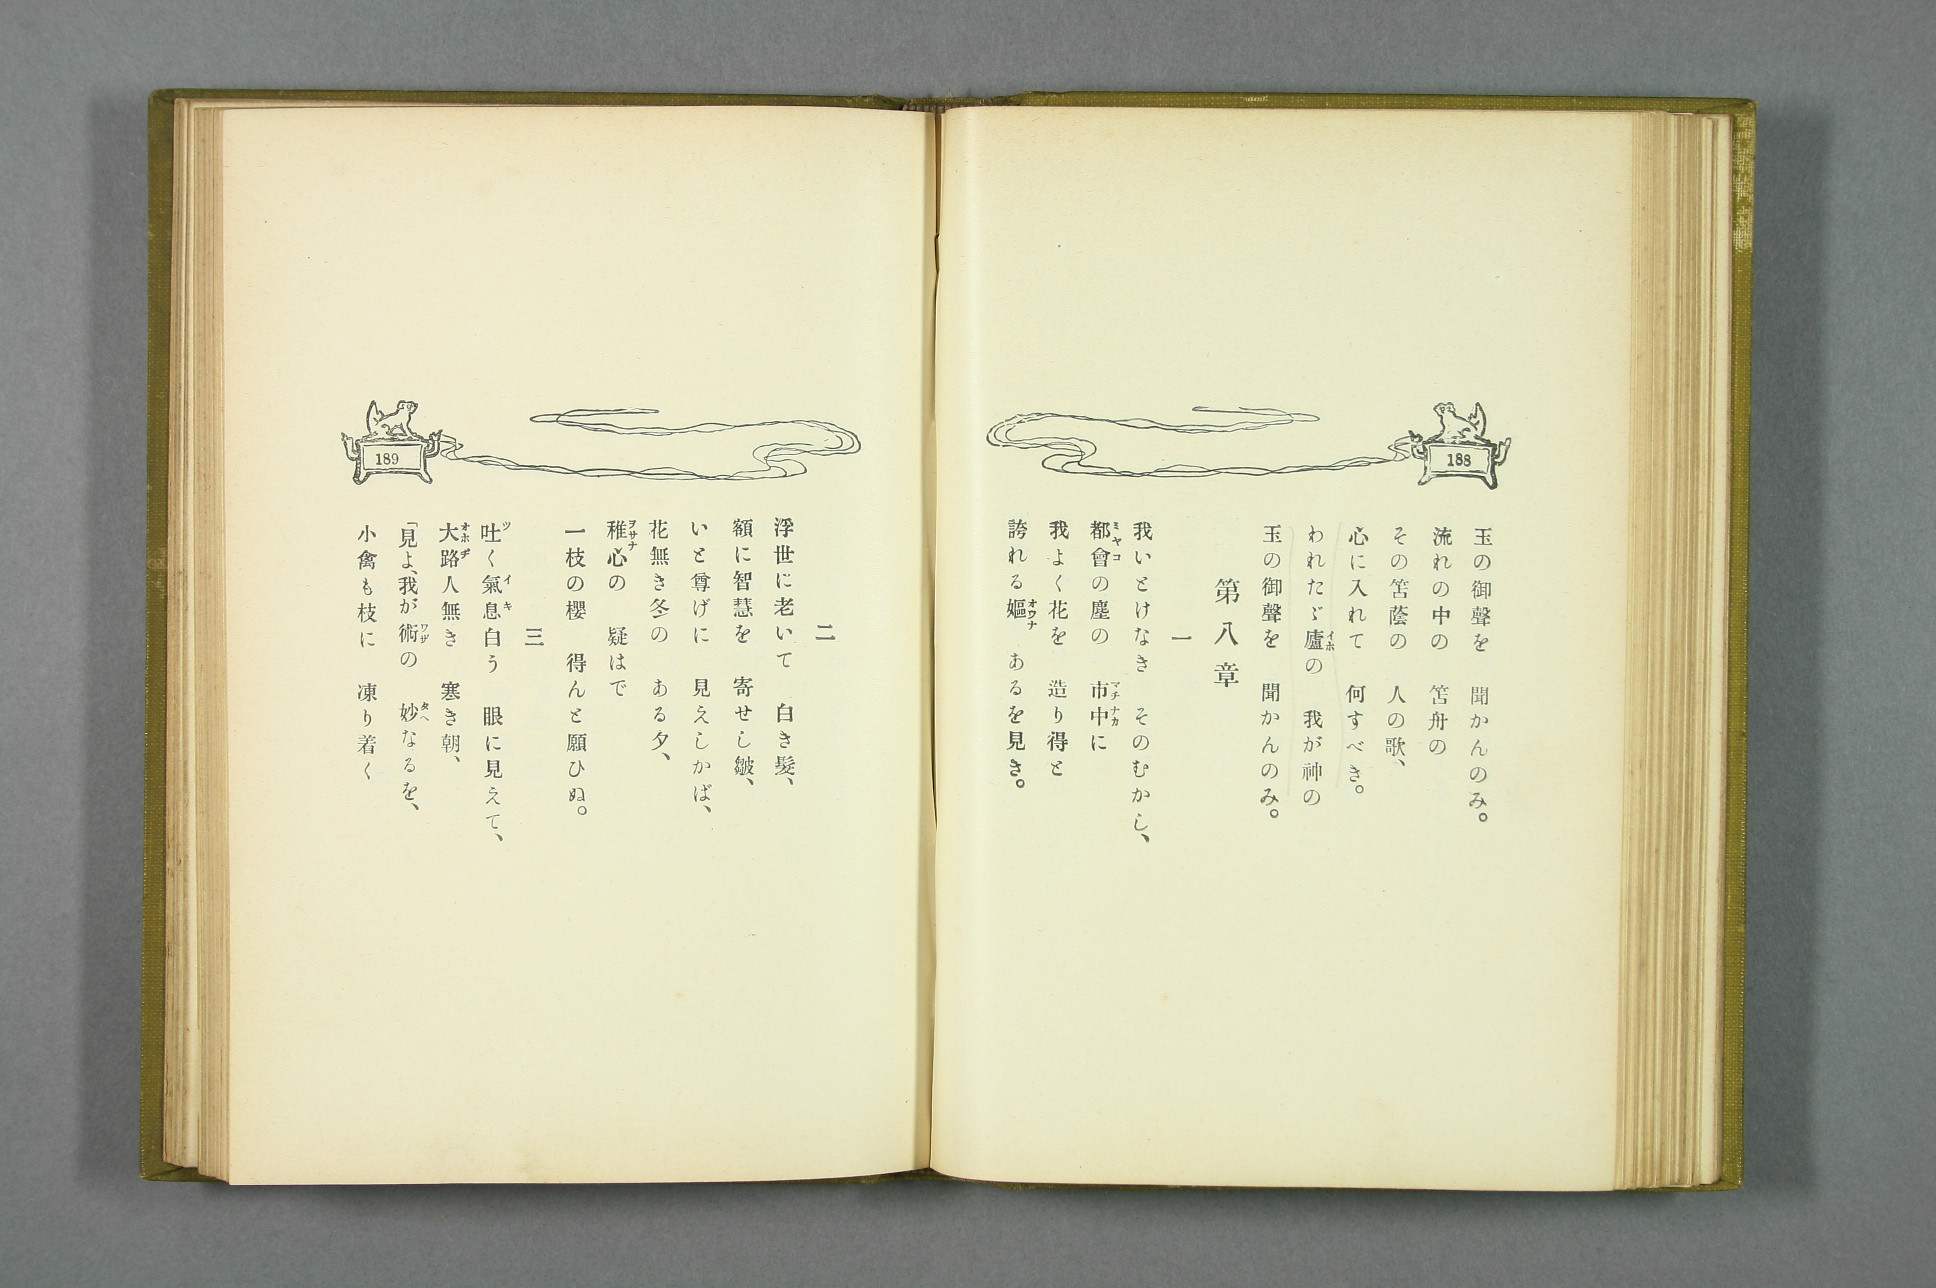 188
玉の御聲を　聞かんのみ。
流れの中の　笘舟の
その笘蔭の　人の歌、
心に入れて　何すべき。
われたゞ廬の　我が神の
イホ
玉の御聲を　聞かんのみ。
第八章
一
我いとけなき　そのむかし、
都會の塵の　市中に
ミヤコ　マチナカ
我よく花を　造り得と
誇れる嫗　あるを見き。
オウナ
189
二
浮世に老いて　白き髮、
額に智慧を　寄せし皺、
いと尊げに　見えしかば、
花無き冬の　ある夕、
稚心の　疑はで
ヲサナ
一枝の櫻　得んと願ひぬ。
三
吐く氣息白う　眼に見えて、
ツ　イキ
大路人無き　寒き朝、
オホヂ
「見よ、我が術の　妙なるを、
ワザ　タヘ
小禽も枝に　凍り着く